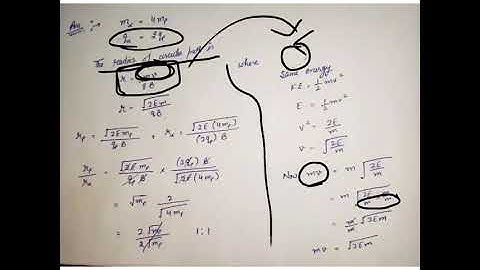 Ans :→ mα = 4mp
qα = 2qp
The radius of circular path is
r = mv / qB
where
r = √2Em / qB
rp = √2Emp / qp B , rα = √2E(4mp) / (2qp) B
rp / rα = √2Emp / qp B × (2qp) B / √2E(4mp)
= √mp 2 / √4mp
= 2√mp / 2√mp 1:1
Same energy
K.E. = 1/2 mv²
E = 1/2 mv²
v² = 2E / m
v = √2E / m
Now mv = m √2E / m
= m √2E m / m m
= m / m √2Em
mv = √2Em